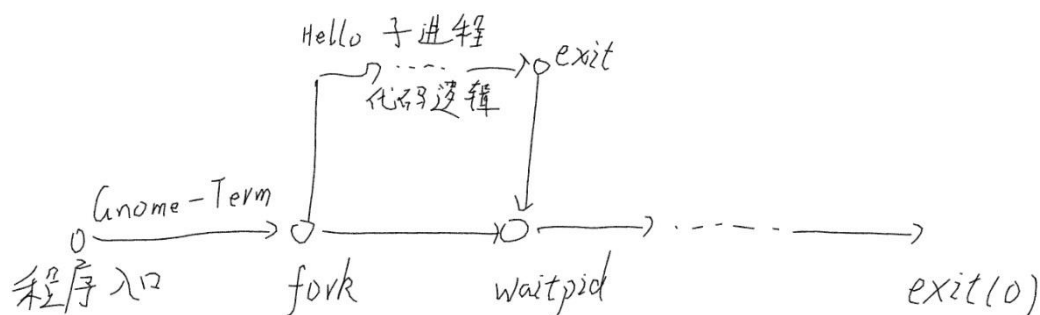 Hello 子进程
exit
代码逻辑
Gnome-Term
程序入口
fork
waitpid
exit(0)